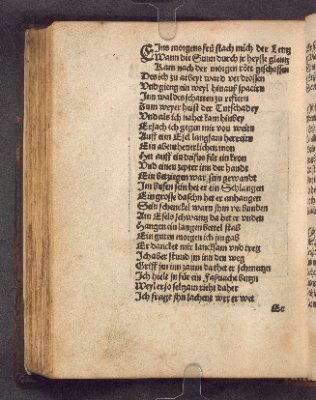 Eins morgens frü stach mich der Lentz
Wann die Sunn durch jr heysse glentz
Kam nach der morgen röte geschossen
Des ich zu arbeyt ward verdrossen
Und gieng ein weyl hinauß spacirn
Inn waldes schatten zu refiern
Zum weyer heist der Dutschadey
Und als ich nahet kam hinbey
Ersach ich gegen mir von weiten
Auff eim Esel langsam herreiten
Ein abentheuerlichen mon
Het auff ein für ein kron
Und einen zepter inn der handt
Ein war sein gewandt
Im busen sein het er ein Schlangen
Ein grosse daschn het er anhangen
Sein schenckel warn jhm verbunden
Am Esels schwantz da het er unden
Hangen ein langen bettel stab
Ein guten morgen ich jm gab
Er dancket mir langsam und treg
Ich aber stund jm inn den weg
Griff jm inn zaum da thet er schmutzn
Ich hielt jn für ein Fasnacht butzn
Weyl er so seltzam rieht daher
Ich fragt jhn lachent wer er wer
Er